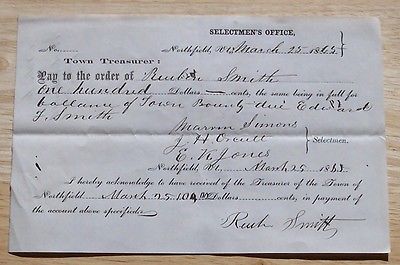 SELECTMEN'S OFFICE,
No. Northfield, Vt. March 25 1865
Town Treasurer:
Pay to the order of Reuben Smith
one hundred Dollars cents, the same being in full for
ballance of Town Bounty due Edward
F. Smith
Marvin Simons
J. H. Orcutt
Selectmen.
E. K. Jones
Northfield, Vt. March 25 1865
I hereby acknowledge to have received of the Treasurer of the Town of
Northfield, March 25 100 Dollars cents, in payment of
the account above specified:
Reub Smith